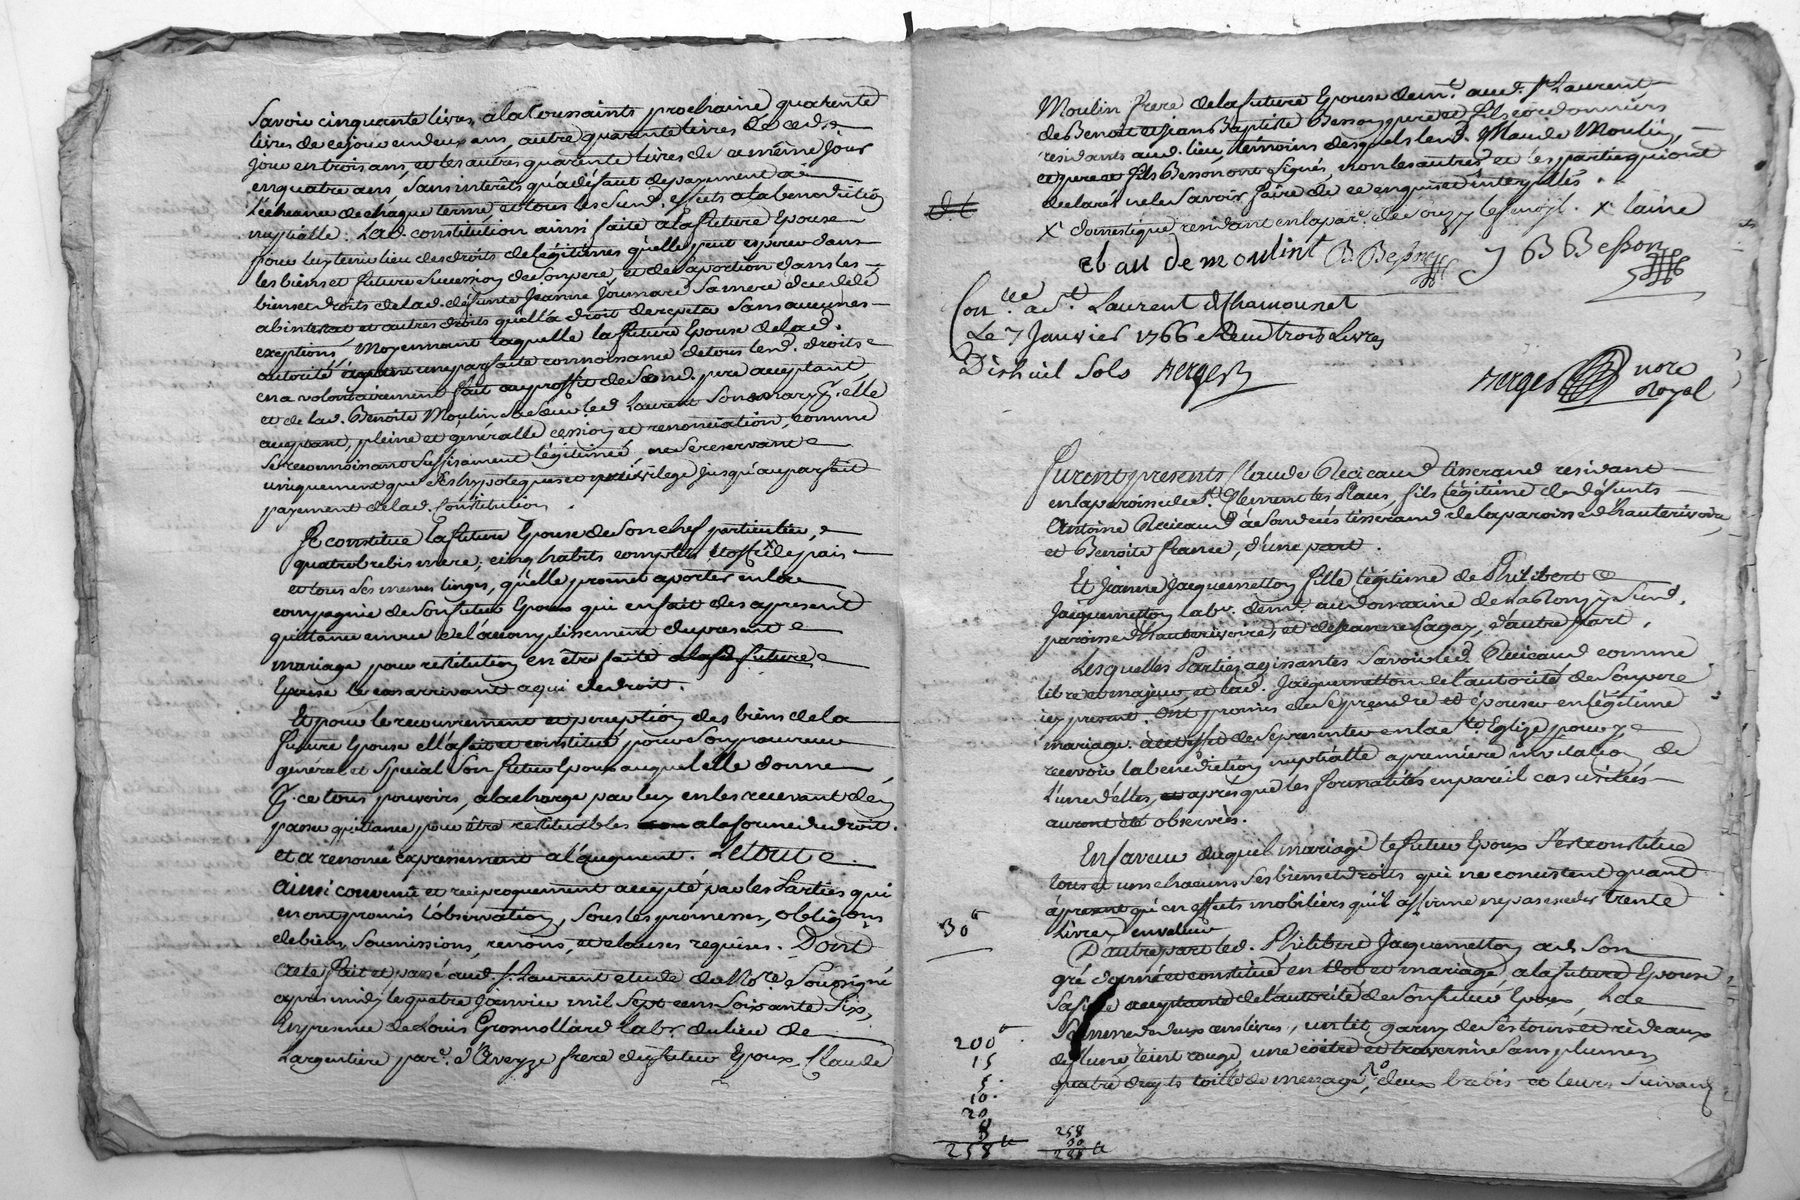 Savoir cinquante livres a la toussaints prochaine quarente
livres de ce jour en deux ans, autre quarente livres de ced.
jour en trois ans, et les autres quarente livres de ce même jour
en quatre ans, sans interêts qu'a défaut de payement a
l'écheance de chaque terme et tous lesd. effets a la benediction
nuptialle. Lad. constitution ainsi faite a la future Epouse
pour luy tenir lieu des droits de légitimes qu'elle peut esperer dans
les biens et future succession de son pere, et de sa portion dans les
biens et droits de lad. défunte Jeanne sa mere decedée
abintestat et autres droits quel'a droit sans aucunes
exeptions, Moyennant laquelle la future Epouse de lad.
autorité ayant une parfaite connoisance de tous lesd. droits
en a volontairement fait au proffit de sond. pere acceptant
et de lad. Benoite Moulin sa sœur led. Laurent son mary p. elle
acceptant, pleine et généralle cession et renonciation, comme
se reconnoissant suffisament légitimée, ne se reservant
uniquement que ses hypoteques et privilege jusqu'au parfait
payement de lad. Constitution.
Se constitue la future Epouse de son chef particulier,
quatre brebis mere, cinq habits complets étoffe de pais
et tous ses menus linges, qu'elle promet aporter en la
compagnie de son futur Epoux qui en fait des apresent
quittance en vue de l'acomplissement du present
mariage pour restitution en être faite a lad. future
Epouse le cas arrivant a qui de droit.
Et pour le recouvrement et perception des biens de la
future Epouse elle a fait et constitué pour son procureur
général et spécial son futur Epoux auquel elle donne
p. ce tous pouvoirs, a la charge par luy en les recevant d'en
passer quittance pour être restituables a la forme du droit.
et a renoncé expressement a l'augment. Le tout
ainsi convenu et reciproquement accepté par les Parties qui
en ont promis l'observation, sous les promesses, obligõns
de biens, soumissions, renons, et clauses requises. Dont
acte fait et passé aud. St. Laurent etude du Nore. Soussigné
apres midy le quatre janvier mil sept cens soixante six,
En presence de Louis Grosmollard labr du lieu de
Largentiere par. d'Aveyze frere du futur Epoux, Claude
Moulin frere de la future Epouse demt. aud. St Laurent
de Benoit et jean Baptiste Besson pere et fils cordonniers
residants aud. lieu, témoins desquels led. Claude Moulin,
et pere et fils Besson ont signés, non les autres et les parties qui ont
declarés ne le savoir faire de ce enquis et interpellés. x laine
x domestique residant en la par. de
clau de moulint B Besson J B Besson
Conlee a St. Laurent d Chamousset
Le 7 Janvier 1766 Reçu trois livres
Dix huit sols Berger
Berger nore Royal
Furent presents Claude Recicaud tisserand residant
en la paroisse de St. Clement les Places, fils légitime de défunts
Antoine Recicaud à son deces tisserand de la paroisse d'hauterivoire,
et Benoite france, d'une part.
Et Jeanne Jacquemetton fille légitime de Philibert
Jacquemetton labr. demt. au domaine de
paroisse d'hauterivoire, et de Jeanne Lagay, d'autre part.
Lesquelles Parties agissantes savoir led. Recicaud comme
libre et majeur, et lad. Jacquemetton de l'autorité de son pere
icy present. Ont promis de se prendre et épouser en légitime
mariage. a l'effet de se presenter en la Ste Eglize pour y
recevoir la bénédiction nuptialle a premiere invitation de
l'une d'elles, aprés que les formalités en pareil cas usitées
auront été observées.
En faveur duquel mariage le futur Epoux s'est constitué
tous et uns chacuns ses biens et droits qui ne consistent quant
apresent qu'en effets mobiliers qu'il affirme ne pas exceder trente
livres en valeur 30tt
D'autre part led. Philibert Jacquemetton a de son
gré donné et constitué en dot et mariage a la future Epouse
sa fille acceptante de l'autorité de son futur Epoux, La
Somme de deux cens livres, un lit garny de ses tours et rideaux
de laine teint rouge, une coitre et traversin sans plumes,
quatre draps toille de menage, deux brebis et leurs suivants
200tt
15
5.
10.
20
8
258tt
258
30
288tt